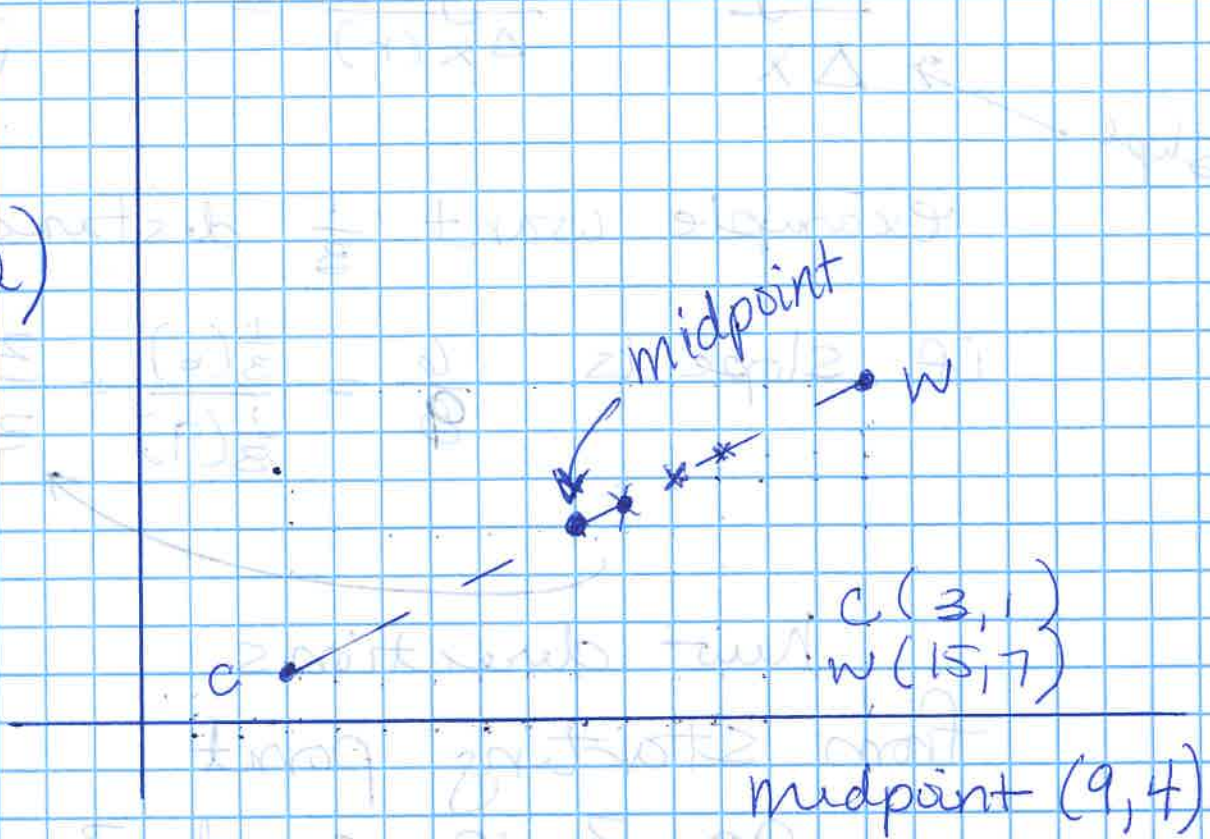 midpoint
W
C
C (3, 1)
W (15, 7)
midpoint (9, 4)